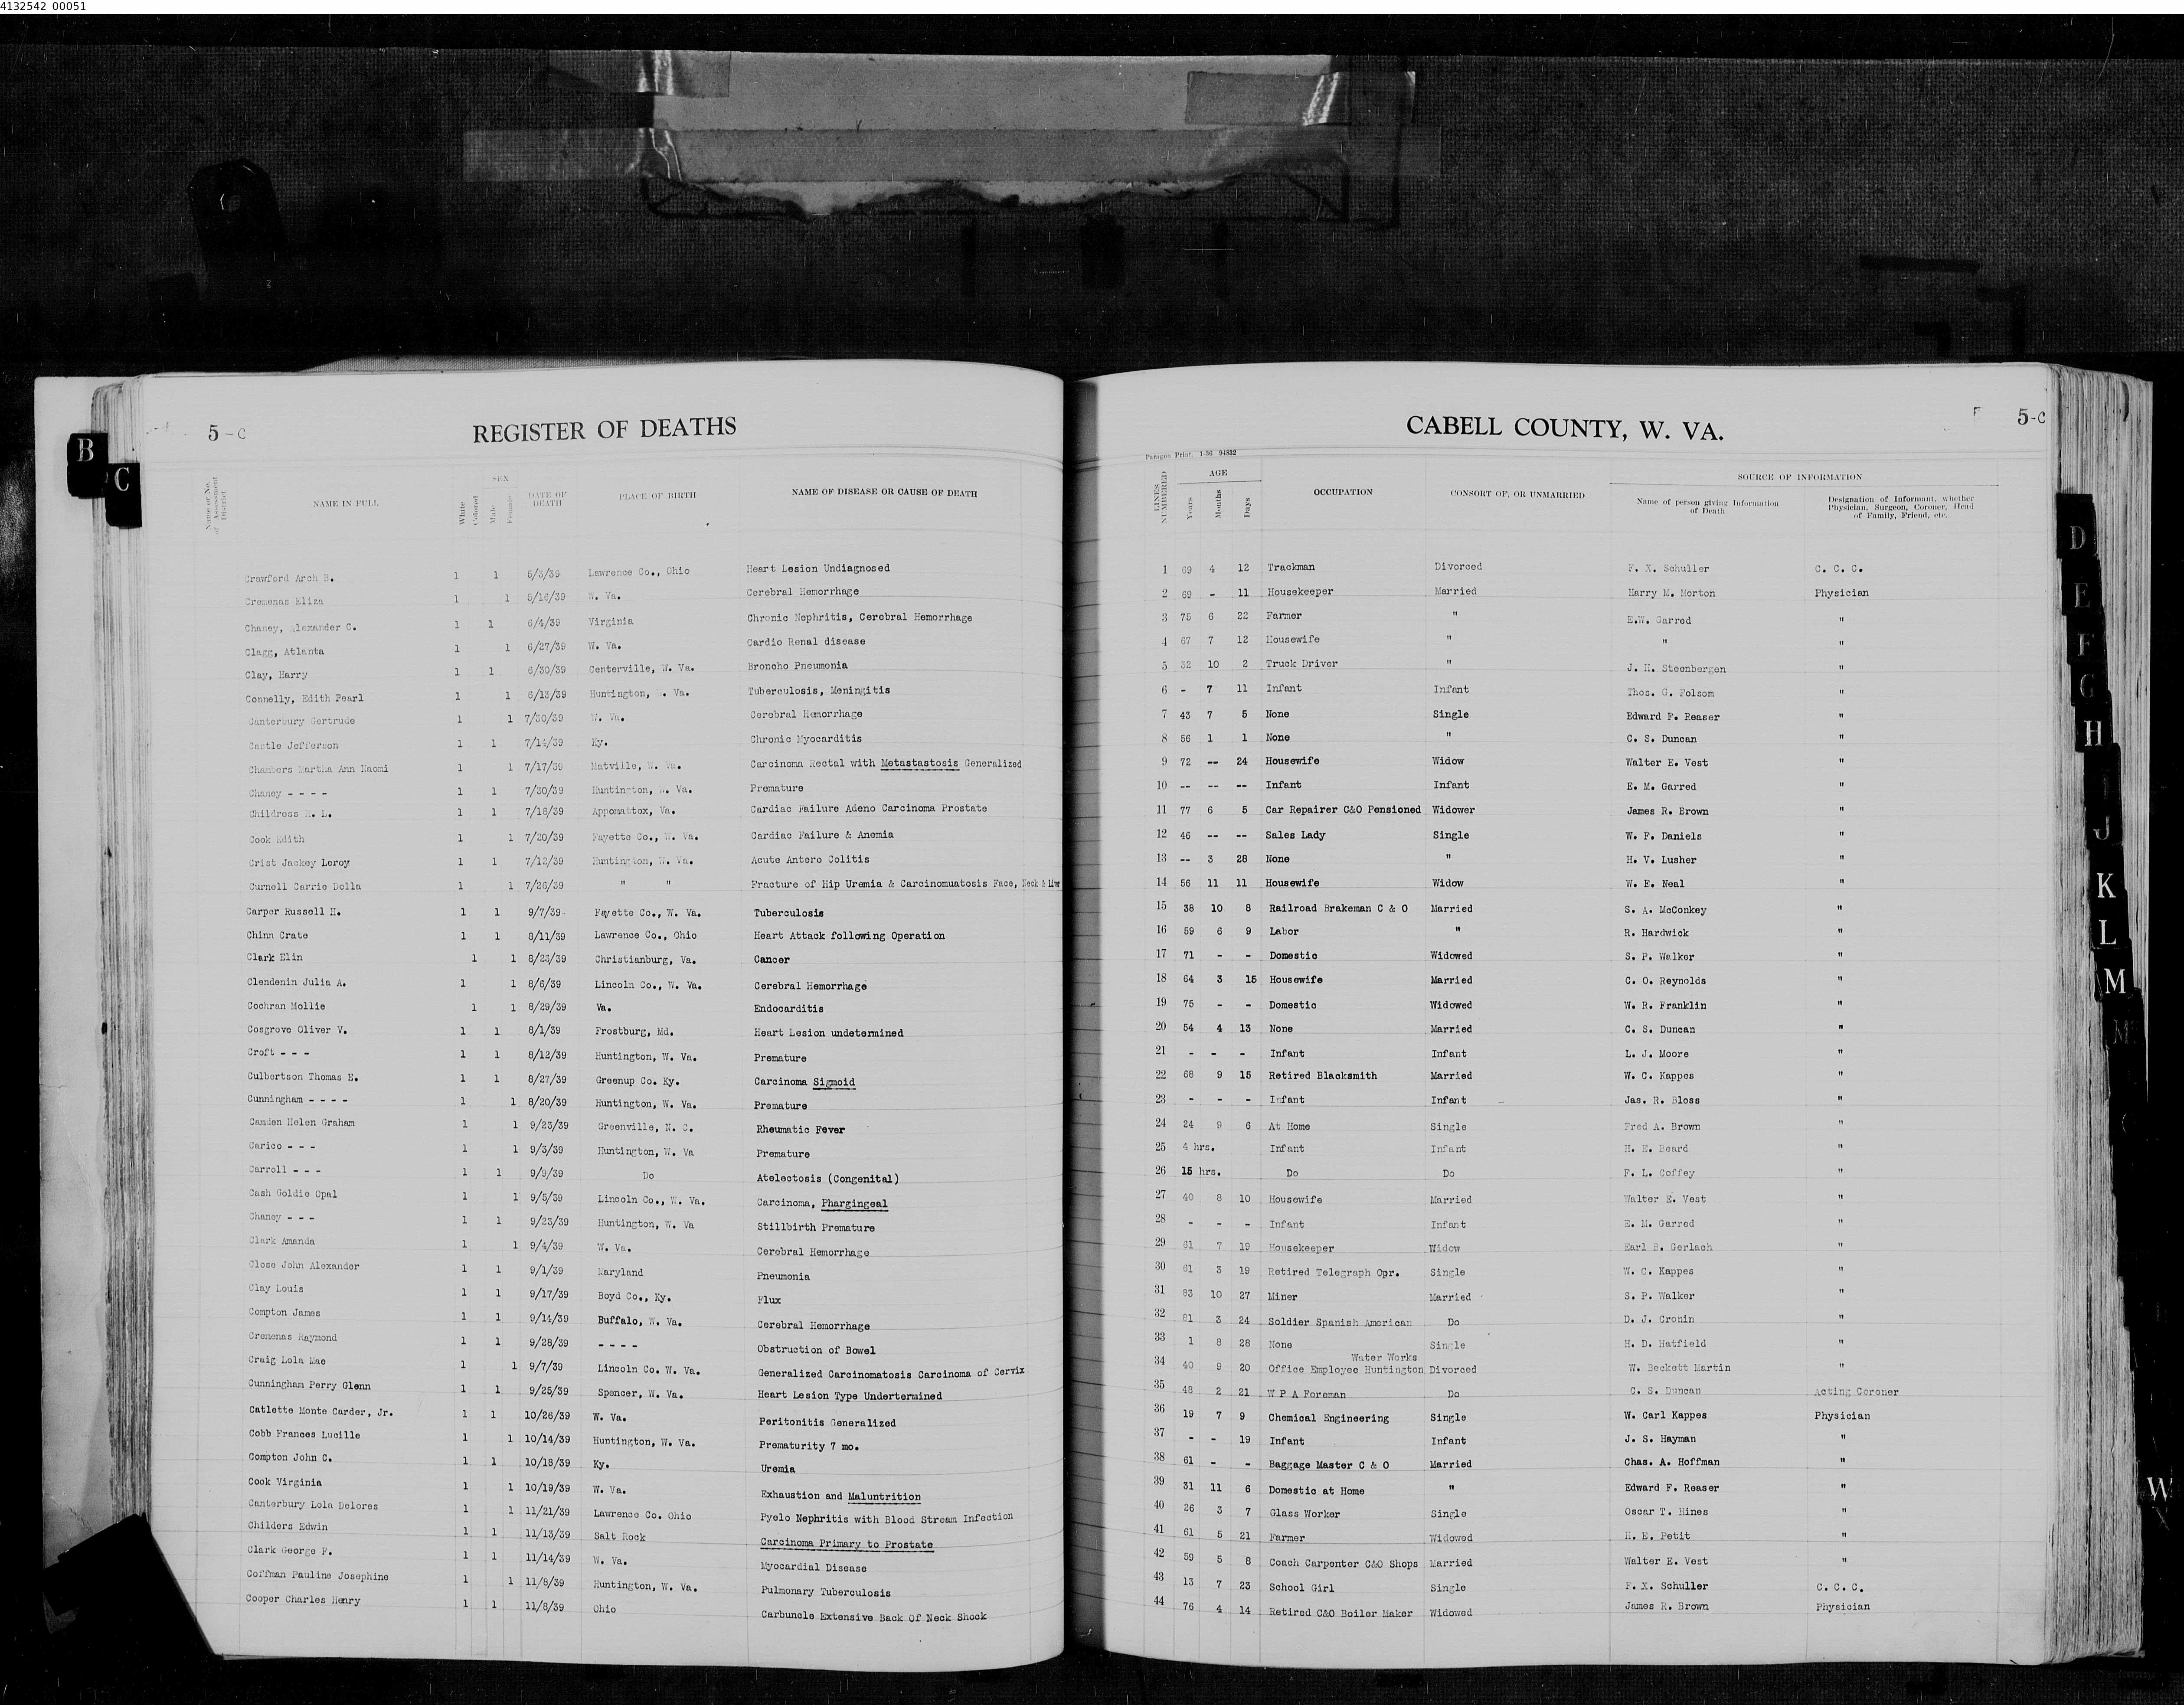 4132542_00051
5-C
REGISTER OF DEATHS
CABELL COUNTY, W. VA.
5-C
Paragon Print, 1-36 94832
Name or No. of Assessment District
NAME IN FULL
SEX
White Colored Male Female
DATE OF DEATH
PLACE OF BIRTH
NAME OF DISEASE OR CAUSE OF DEATH
LINES NUMBERED
AGE
Years Months Days
OCCUPATION
CONSORT OF, OR UNMARRIED
SOURCE OF INFORMATION
Name of person giving Information of Death
Designation of Informant, whether Physician, Surgeon, Coroner, Head of Family, Friend, etc.
Crawford Arch B. 1 1 5/3/39 Lawrence Co., Ohio Heart Lesion Undiagnosed 1 69 4 12 Trackman Divorced F. X. Schuller C. C. C.
Cremenas Eliza 1 1 5/16/39 W. Va. Cerebral Hemorrhage 2 69 - 11 Housekeeper Married Harry M. Morton Physician
Chaney, Alexander C. 1 1 6/4/39 Virginia Chronic Nephritis, Cerebral Hemorrhage 3 75 6 22 Farmer " E.W. Garred "
Clagg, Atlanta 1 1 6/27/39 W. Va. Cardio Renal disease 4 67 7 12 Housewife " " "
Clay, Harry 1 1 6/30/39 Centerville, W. Va. Broncho Pneumonia 5 32 10 2 Truck Driver " J. H. Steenbergen "
Connelly, Edith Pearl 1 1 6/13/39 Huntington, W. Va. Tuberculosis, Meningitis 6 - 7 11 Infant Infant Thos. G. Folsom "
Canterbury Gertrude 1 1 7/30/39 W. Va. Cerebral Hemorrhage 7 43 7 5 None Single Edward F. Reaser "
Castle Jefferson 1 1 7/14/39 Ky. Chronic Myocarditis 8 56 1 1 None " C. S. Duncan "
Chambers Martha Ann Naomi 1 1 7/17/39 Matville, W. Va. Carcinoma Rectal with Metastastosis Generalized 9 72 -- 24 Housewife Widow Walter E. Vest "
Chaney - - - - 1 1 7/30/39 Huntington, W. Va. Premature 10 -- -- -- Infant Infant E. M. Garred "
Childress M. L. 1 1 7/18/39 Appomattox, Va. Cardiac Failure Adeno Carcinoma Prostate 11 77 6 5 Car Repairer C&O Pensioned Widower James R. Brown "
Cook Edith 1 1 7/20/39 Fayette Co., W. Va. Cardiac Failure & Anemia 12 46 -- -- Sales Lady Single W. F. Daniels "
Crist Jackey Leroy 1 1 7/12/39 Huntington, W. Va. Acute Antero Colitis 13 -- 3 28 None " H. V. Lusher "
Curnell Carrie Della 1 1 7/26/39 " " Fracture of Hip Uremia & Carcinomuatosis Face, Neck & Liver 14 56 11 11 Housewife Widow W. E. Neal "
Carper Russell H. 1 1 9/7/39 Fayette Co., W. Va. Tuberculosis 15 38 10 8 Railroad Brakeman C & O Married S. A. McConkey "
Chinn Crate 1 1 8/11/39 Lawrence Co., Ohio Heart Attack following Operation 16 59 6 9 Labor " R. Hardwick "
Clark Elin 1 1 8/23/39 Christianburg, Va. Cancer 17 71 - - Domestic Widowed S. P. Walker "
Clendenin Julia A. 1 1 8/6/39 Lincoln Co., W. Va. Cerebral Hemorrhage 18 64 3 15 Housewife Married C. O. Reynolds "
Cochran Mollie 1 1 8/29/39 Va. Endocarditis 19 75 - - Domestic Widowed W. R. Franklin "
Cosgrove Oliver V. 1 1 8/1/39 Frostburg, Md. Heart Lesion undetermined 20 54 4 13 None Married C. S. Duncan "
Croft - - - 1 1 8/12/39 Huntington, W. Va. Premature 21 - - - Infant Infant L. J. Moore "
Culbertson Thomas E. 1 1 8/27/39 Greenup Co. Ky. Carcinoma Sigmoid 22 68 9 15 Retired Blacksmith Married W. C. Kappes "
Cunningham - - - - 1 1 8/20/39 Huntington, W. Va. Premature 23 - - - Infant Infant Jas. R. Bloss "
Camden Helen Graham 1 1 9/23/39 Greenville, N. C. Rheumatic Fever 24 24 9 6 At Home Single Fred A. Brown "
Carico - - - 1 1 9/3/39 Huntington, W. Va Premature 25 4 hrs. Infant Infant H. E. Beard "
Carroll - - - 1 1 9/9/39 Do Atelectosis (Congenital) 26 15 hrs. Do Do F. L. Coffey "
Cash Goldie Opal 1 1 9/5/39 Lincoln Co., W. Va. Carcinoma, Phargingeal 27 40 8 10 Housewife Married Walter E. Vest "
Chaney - - - 1 1 9/23/39 Huntington, W. Va Stillbirth Premature 28 - - - Infant Infant E. M. Garred "
Clark Amanda 1 1 9/4/39 W. Va. Cerebral Hemorrhage 29 61 7 19 Housekeeper Widow Earl B. Gerlach "
Close John Alexander 1 1 9/1/39 Maryland Pneumonia 30 61 3 19 Retired Telegraph Opr. Single W. C. Kappes "
Clay Louis 1 1 9/17/39 Boyd Co., Ky. Flux 31 83 10 27 Miner Married S. P. Walker "
Compton James 1 1 9/14/39 Buffalo, W. Va. Cerebral Hemorrhage 32 81 3 24 Soldier Spanish American Do D. J. Cronin "
Cremenas Raymond 1 1 9/28/39 - - - - Obstruction of Bowel 33 1 8 28 None Single H. D. Hatfield "
Water Works
Craig Lola Mae 1 1 9/7/39 Lincoln Co. W. Va. Generalized Carcinomatosis Carcinoma of Cervix 34 40 9 20 Office Employee Huntington Divorced W. Beckett Martin "
Cunningham Perry Glenn 1 1 9/25/39 Spencer, W. Va. Heart Lesion Type Undertermined 35 48 2 21 W P A Foreman Do C. S. Duncan Acting Coroner
Catlette Monte Carder, Jr. 1 1 10/26/39 W. Va. Peritonitis Generalized 36 19 7 9 Chemical Engineering Single W. Carl Kappes Physician
Cobb Frances Lucille 1 1 10/14/39 Huntington, W. Va. Prematurity 7 mo. 37 - - 19 Infant Infant J. S. Hayman "
Compton John C. 1 1 10/18/39 Ky. Uremia 38 61 - - Baggage Master C & O Married Chas. A. Hoffman "
Cook Virginia 1 1 10/19/39 W. Va. Exhaustion and Maluntrition 39 31 11 6 Domestic at Home " Edward F. Reaser "
Canterbury Lola Delores 1 1 11/21/39 Lawrence Co. Ohio Pyelo Nephritis with Blood Stream Infection 40 26 3 7 Glass Worker Single Oscar T. Hines "
Childers Edwin 1 1 11/13/39 Salt Rock Carcinoma Primary to Prostate 41 61 5 21 Farmer Widowed H. E. Petit "
Clark George F. 1 1 11/14/39 W. Va. Myocardial Disease 42 59 5 8 Coach Carpenter C&O Shops Married Walter E. Vest "
Coffman Pauline Josephine 1 1 11/8/39 Huntington, W. Va. Pulmonary Tuberculosis 43 13 7 23 School Girl Single F. X. Schuller C. C. C.
Cooper Charles Henry 1 1 11/8/39 Ohio Carbuncle Extensive Back Of Neck Shock 44 76 4 14 Retired C&O Boiler Maker Widowed James R. Brown Physician
B
C
D
E
F
G
H
I
J
K
L
M
W